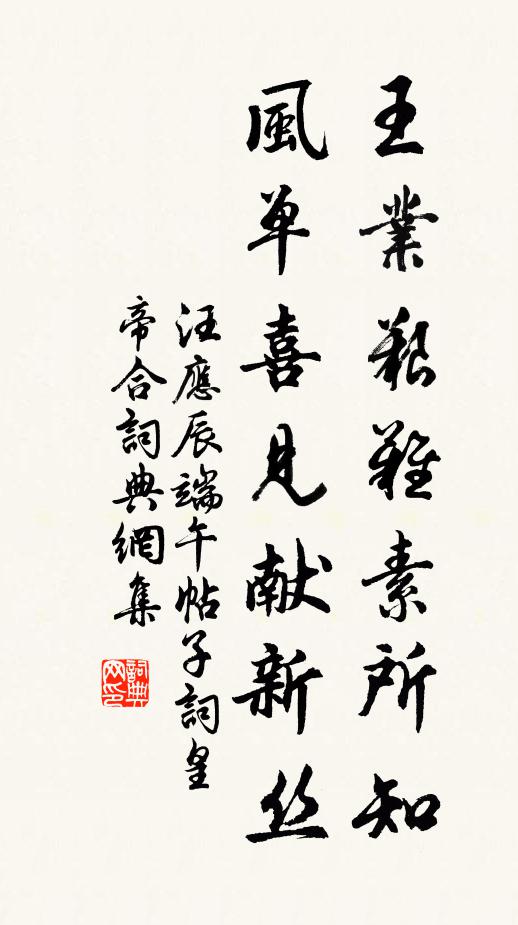 王業艱難素所知
風单喜見献新丝
汪應辰端午帖子詞皇
帝合詞典網集
詞典网印